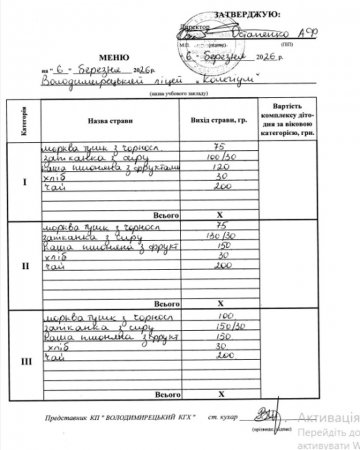 ЗАТВЕРДЖУЮ:
Директор Остапенко АФ
М.П. (ПІП)
"6" березня 2026 р.
МЕНЮ
на "6" березня 2026 р.
Володимирецький ліцей "Колегіум"
(назва учбового закладу)
Категорія Назва страви Вихід страви, гр. Вартість комплексу діто-дня за віковою категорією, грн.
I
морква туш з чорносл. 75
запіканка з сиру 100/30
каша пшоняна з фруктами 120
хліб 30
чай 200
Всього X
II
морква туш з чорносл 75
запіканка з сиру 130/30
каша пшоняна з фрукт 150
хліб 30
чай 200
Всього X
III
морква туш з чорносл 100
запіканка з сиру 150/30
каша пшоняна з фрукт 150
хліб 30
чай 200
Всього X
Представник КП "ВОЛОДИМИРЕЦЬКИЙ КГХ" ст. кухар
(прізвище, підпис)
Активація
Перейдіть до
активувати W